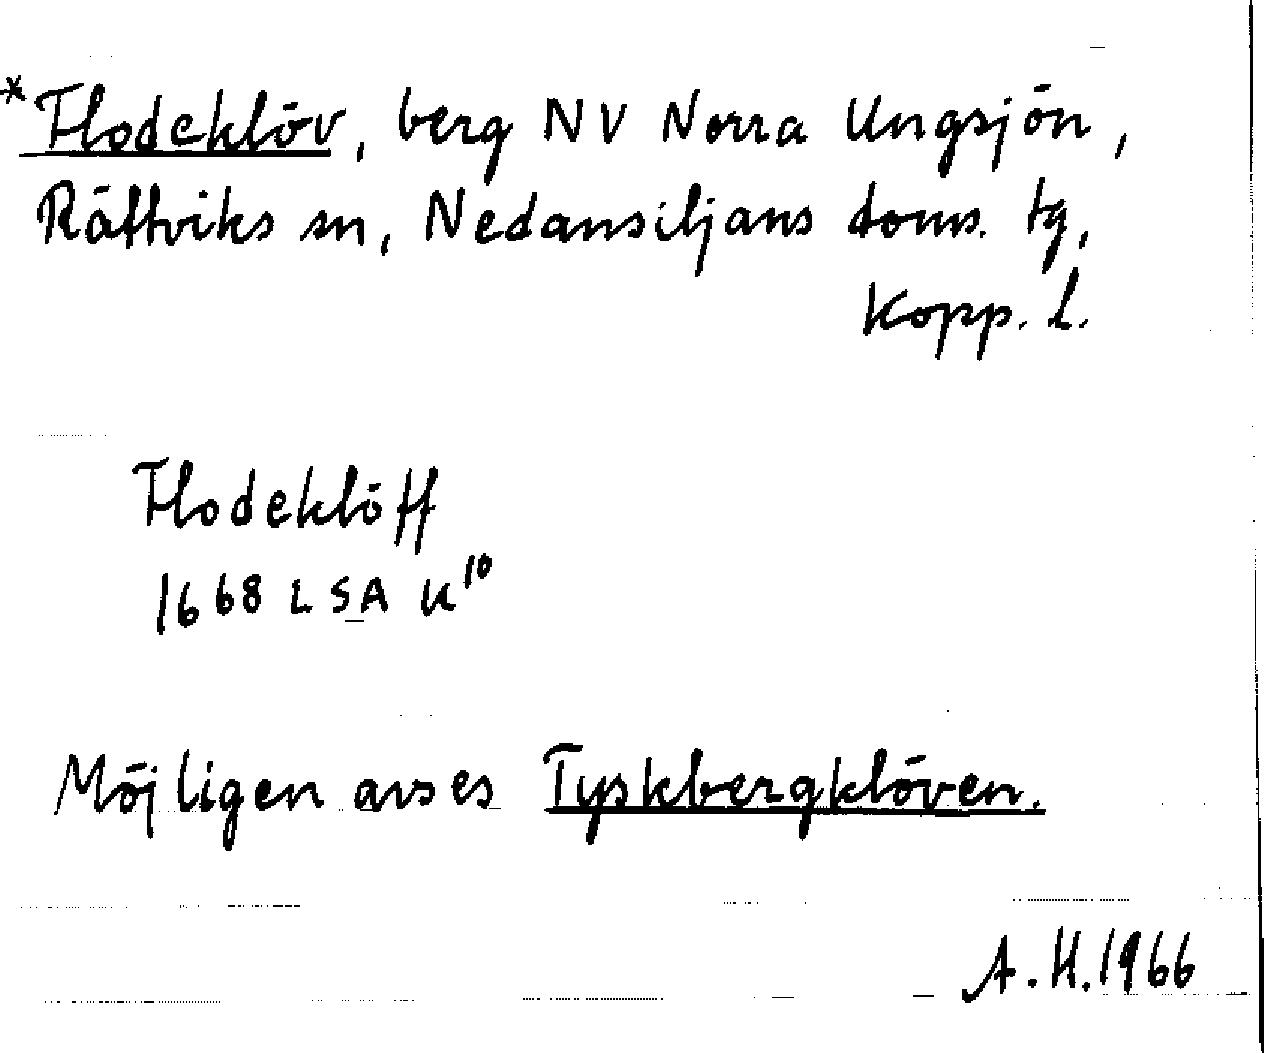 *Flodeklöv, berg NV Norra Ungsjön,
Rättviks sn, Nedansiljans doms. tg,
Kopp. l.
Flodeklöff
1668 LSA U¹⁰
Möjligen avses Tyskbergklöven.
A.H. 1966